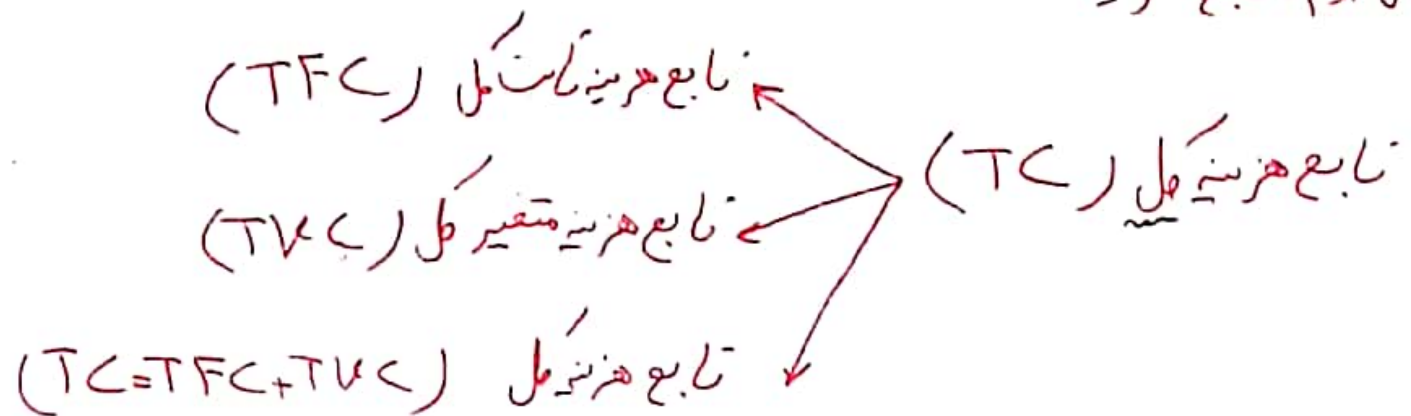 تابع هزینه کل (TC)
تابع هزینه ثابت کل (TFC)
تابع هزینه متغیر کل (TVC)
تابع هزینه کل (TC=TFC+TVC)